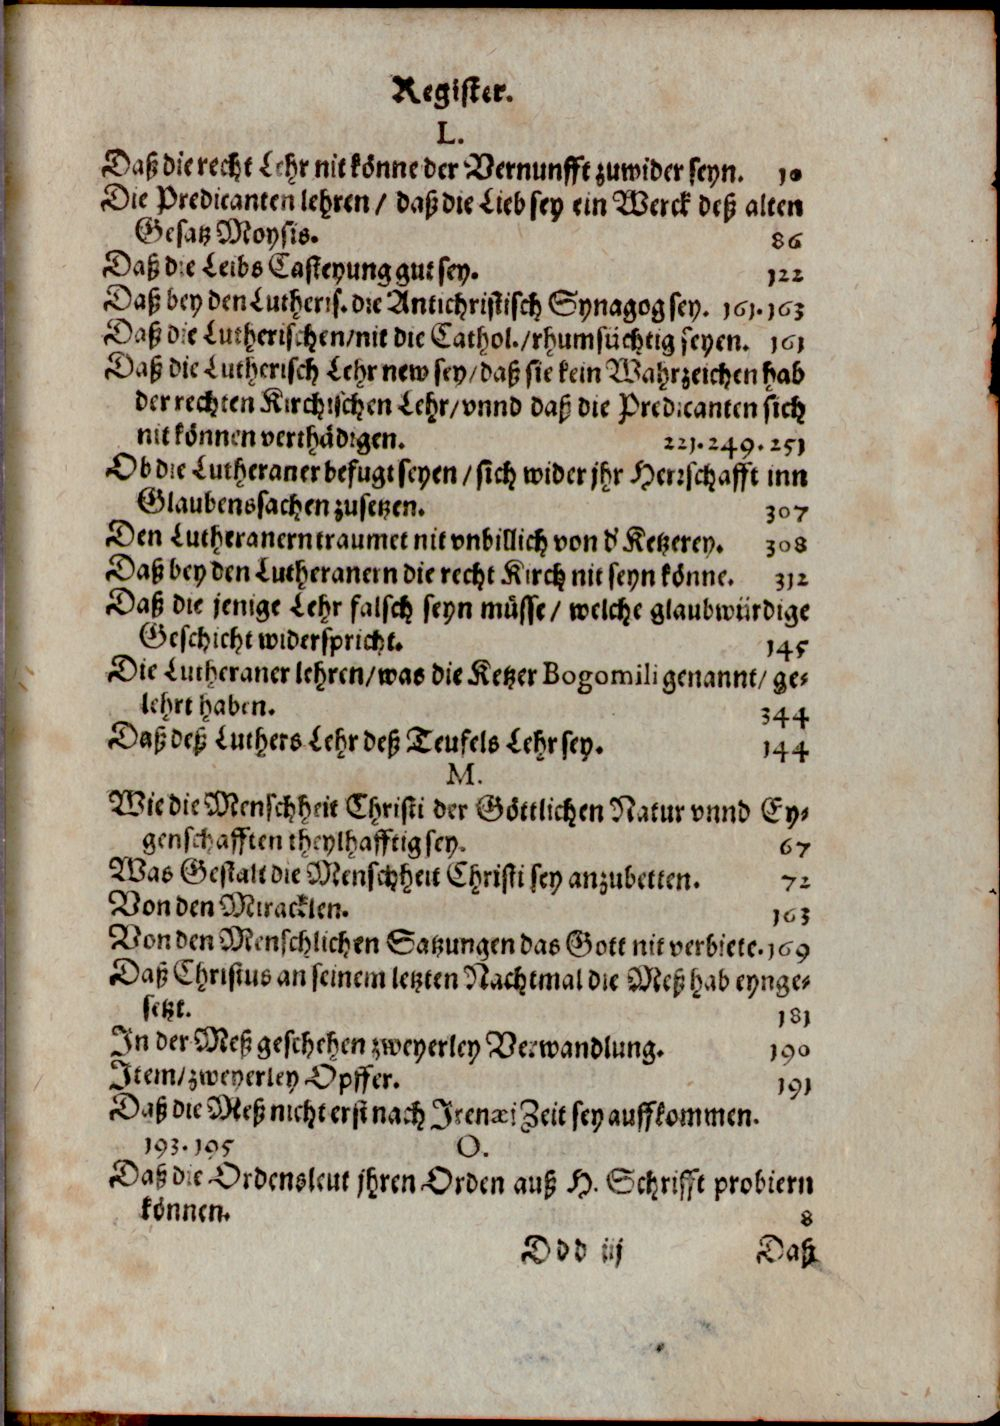 Register.
L.
Daß die recht Lehr nit könne der Vernunfft zuwider seyn. 10
Die Predicanten lehren / daß die Lieb sey ein Werck deß alten
Gesatz Moysis. 86
Daß die Leibs Casteyung gut sey. 122
Daß bey den Lutheris. die Antichristisch Synagog sey. 161.163
Daß die Lutherischen/nit die Cathol./rhumsüchtig seyen. 161
Daß die Lutherisch Lehr new sey/daß sie kein Wahrzeichen hab
der rechten Kirchischen Lehr/vnnd daß die Predicanten sich
nit können verthädigen. 221.249.251
Ob die Lutheraner befugt seyen / sich wider jhr Herrschafft inn
Glaubenssachen zusetzen. 307
Den Lutheranern traumet nit vnbillich von d' Ketzerey. 308
Daß bey den Lutheranern die recht Kirch nit seyn könne. 312
Daß die jenige Lehr falsch seyn müsse / welche glaubwürdige
Geschicht widerspricht. 145
Die Lutheraner lehren/was die Ketzer Bogomili genannt/ ge⸗
lehrt haben. 344
Daß deß Luthers Lehr deß Teufels Lehr sey. 144
M.
Wie die Menschheit Christi der Göttlichen Natur vnnd Ey⸗
genschafften theylhafftig sey. 67
Was Gestalt die Menschheit Christi sey anzubetten. 72
Von den Miracklen. 163
Von den Menschlichen Satzungen das Gott nit verbiete. 169
Daß Christus an seinem letzten Nachtmal die Meß hab eynge⸗
setzt. 181
In der Meß geschehen zweyerley Verwandlung. 190
Item/zweyerley Opffer. 191
Daß die Meß nicht erst nach Irenæi Zeit sey auffkommen.
193.195 O.
Daß die Ordensleut jhren Orden auß H. Schrifft probiern
können. 8
Ddd iij Daß